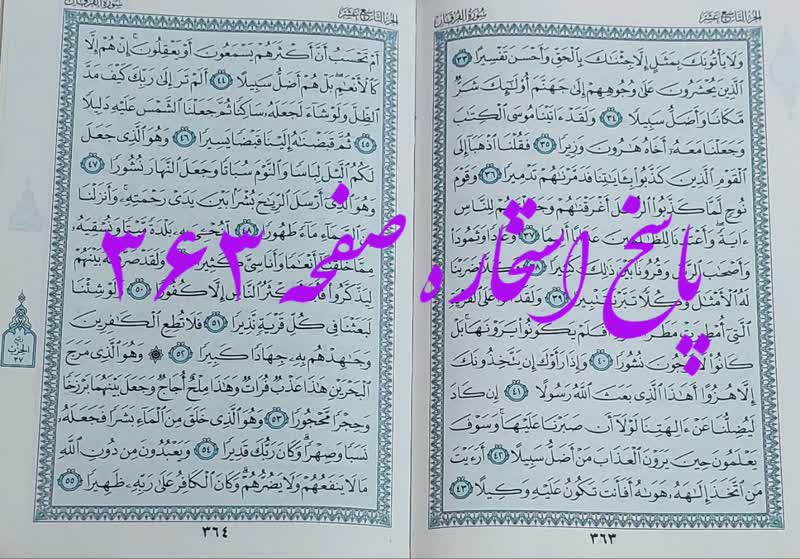 الجزء التاسع عشر
سورة الفرقان
وَلَا يَأْتُونَكَ بِمَثَلٍ إِلَّا جِئْنَاكَ بِالْحَقِّ وَأَحْسَنَ تَفْسِيرًا ٣٣
الَّذِينَ يُحْشَرُونَ عَلَىٰ وُجُوهِهِمْ إِلَىٰ جَهَنَّمَ أُولَٰئِكَ شَرٌّ
مَّكَانًا وَأَضَلُّ سَبِيلًا ٣٤ وَلَقَدْ ءَاتَيْنَا مُوسَى الْكِتَابَ
وَجَعَلْنَا مَعَهُ أَخَاهُ هَارُونَ وَزِيرًا ٣٥ فَقُلْنَا اذْهَبَا إِلَى
الْقَوْمِ الَّذِينَ كَذَّبُوا بِآيَاتِنَا فَدَمَّرْنَاهُمْ تَدْمِيرًا ٣٦ وَقَوْمَ
نُوحٍ لَّمَّا كَذَّبُوا الرُّسُلَ أَغْرَقْنَاهُمْ لِلنَّاسِ
ءَايَةً وَأَعْتَدْنَا لِلظَّالِمِينَ ٣٧ وَعَادًا وَثَمُودَا
وَأَصْحَابَ الرَّسِّ وَقُرُونًا بَيْنَ ذَٰلِكَ كَثِيرًا ٣٨ وَكُلًّا ضَرَبْنَا
لَهُ الْأَمْثَالَ وَكُلًّا تَبَّرْنَا ٣٩ وَلَقَدْ
الَّتِي أُمْطِرَتْ أَفَلَمْ يَكُونُوا يَرَوْنَهَا بَلْ
كَانُوا لَا يَرْجُونَ نُشُورًا ٤٠ وَإِذَا رَأَوْكَ إِن يَتَّخِذُونَكَ
إِلَّا هُزُوًا أَهَٰذَا الَّذِي بَعَثَ اللَّهُ رَسُولًا ٤١ إِن كَادَ
لَيُضِلُّنَا عَنْ ءَالِهَتِنَا لَوْلَا أَن صَبَرْنَا عَلَيْهَا وَسَوْفَ
يَعْلَمُونَ حِينَ يَرَوْنَ الْعَذَابَ مَنْ أَضَلُّ سَبِيلًا ٤٢ أَرَءَيْتَ
مَنِ اتَّخَذَ إِلَٰهَهُ هَوَاهُ أَفَأَنتَ تَكُونُ عَلَيْهِ وَكِيلًا ٤٣
٣٦٣
الجزء التاسع عشر
سورة الفرقان
أَمْ تَحْسَبُ أَنَّ أَكْثَرَهُمْ يَسْمَعُونَ أَوْ يَعْقِلُونَ إِنْ هُمْ إِلَّا
كَالْأَنْعَامِ بَلْ هُمْ أَضَلُّ سَبِيلًا ٤٤ أَلَمْ تَرَ إِلَىٰ رَبِّكَ كَيْفَ مَدَّ
الظِّلَّ وَلَوْ شَاءَ لَجَعَلَهُ سَاكِنًا ثُمَّ جَعَلْنَا الشَّمْسَ عَلَيْهِ دَلِيلًا
٤٥ ثُمَّ قَبَضْنَاهُ إِلَيْنَا قَبْضًا يَسِيرًا ٤٦ وَهُوَ الَّذِي جَعَلَ
لَكُمُ اللَّيْلَ لِبَاسًا وَالنَّوْمَ سُبَاتًا وَجَعَلَ النَّهَارَ نُشُورًا ٤٧
وَهُوَ الَّذِي أَرْسَلَ الرِّيَاحَ بُشْرًا بَيْنَ يَدَيْ رَحْمَتِهِ وَأَنزَلْنَا
السَّمَاءِ مَاءً طَهُورًا ٤٨ لِّنُحْيِيَ بِهِ بَلْدَةً مَّيْتًا وَنُسْقِيَهُ
مِمَّا خَلَقْنَا أَنْعَامًا وَأَنَاسِيَّ كَثِيرًا بَيْنَهُمْ
لِيَذَّكَّرُوا النَّاسِ إِلَّا كُفُورًا ٥٠ وَلَوْ شِئْنَا
لَبَعَثْنَا فِي كُلِّ قَرْيَةٍ نَّذِيرًا ٥١ فَلَا تُطِعِ الْكَافِرِينَ
وَجَاهِدْهُم بِهِ جِهَادًا كَبِيرًا ٥٢ وَهُوَ الَّذِي مَرَجَ
الْبَحْرَيْنِ هَٰذَا عَذْبٌ فُرَاتٌ وَهَٰذَا مِلْحٌ أُجَاجٌ وَجَعَلَ بَيْنَهُمَا بَرْزَخًا
وَحِجْرًا مَّحْجُورًا ٥٣ وَهُوَ الَّذِي خَلَقَ مِنَ الْمَاءِ بَشَرًا فَجَعَلَهُ
نَسَبًا وَصِهْرًا وَكَانَ رَبُّكَ قَدِيرًا ٥٤ وَيَعْبُدُونَ مِن دُونِ اللَّهِ
مَا لَا يَنفَعُهُمْ وَلَا يَضُرُّهُمْ وَكَانَ الْكَافِرُ عَلَىٰ رَبِّهِ ظَهِيرًا ٥٥
٣٦٤
ربع
الحزب
٣٧
پاسخ استخاره صفحه ۳۶۳